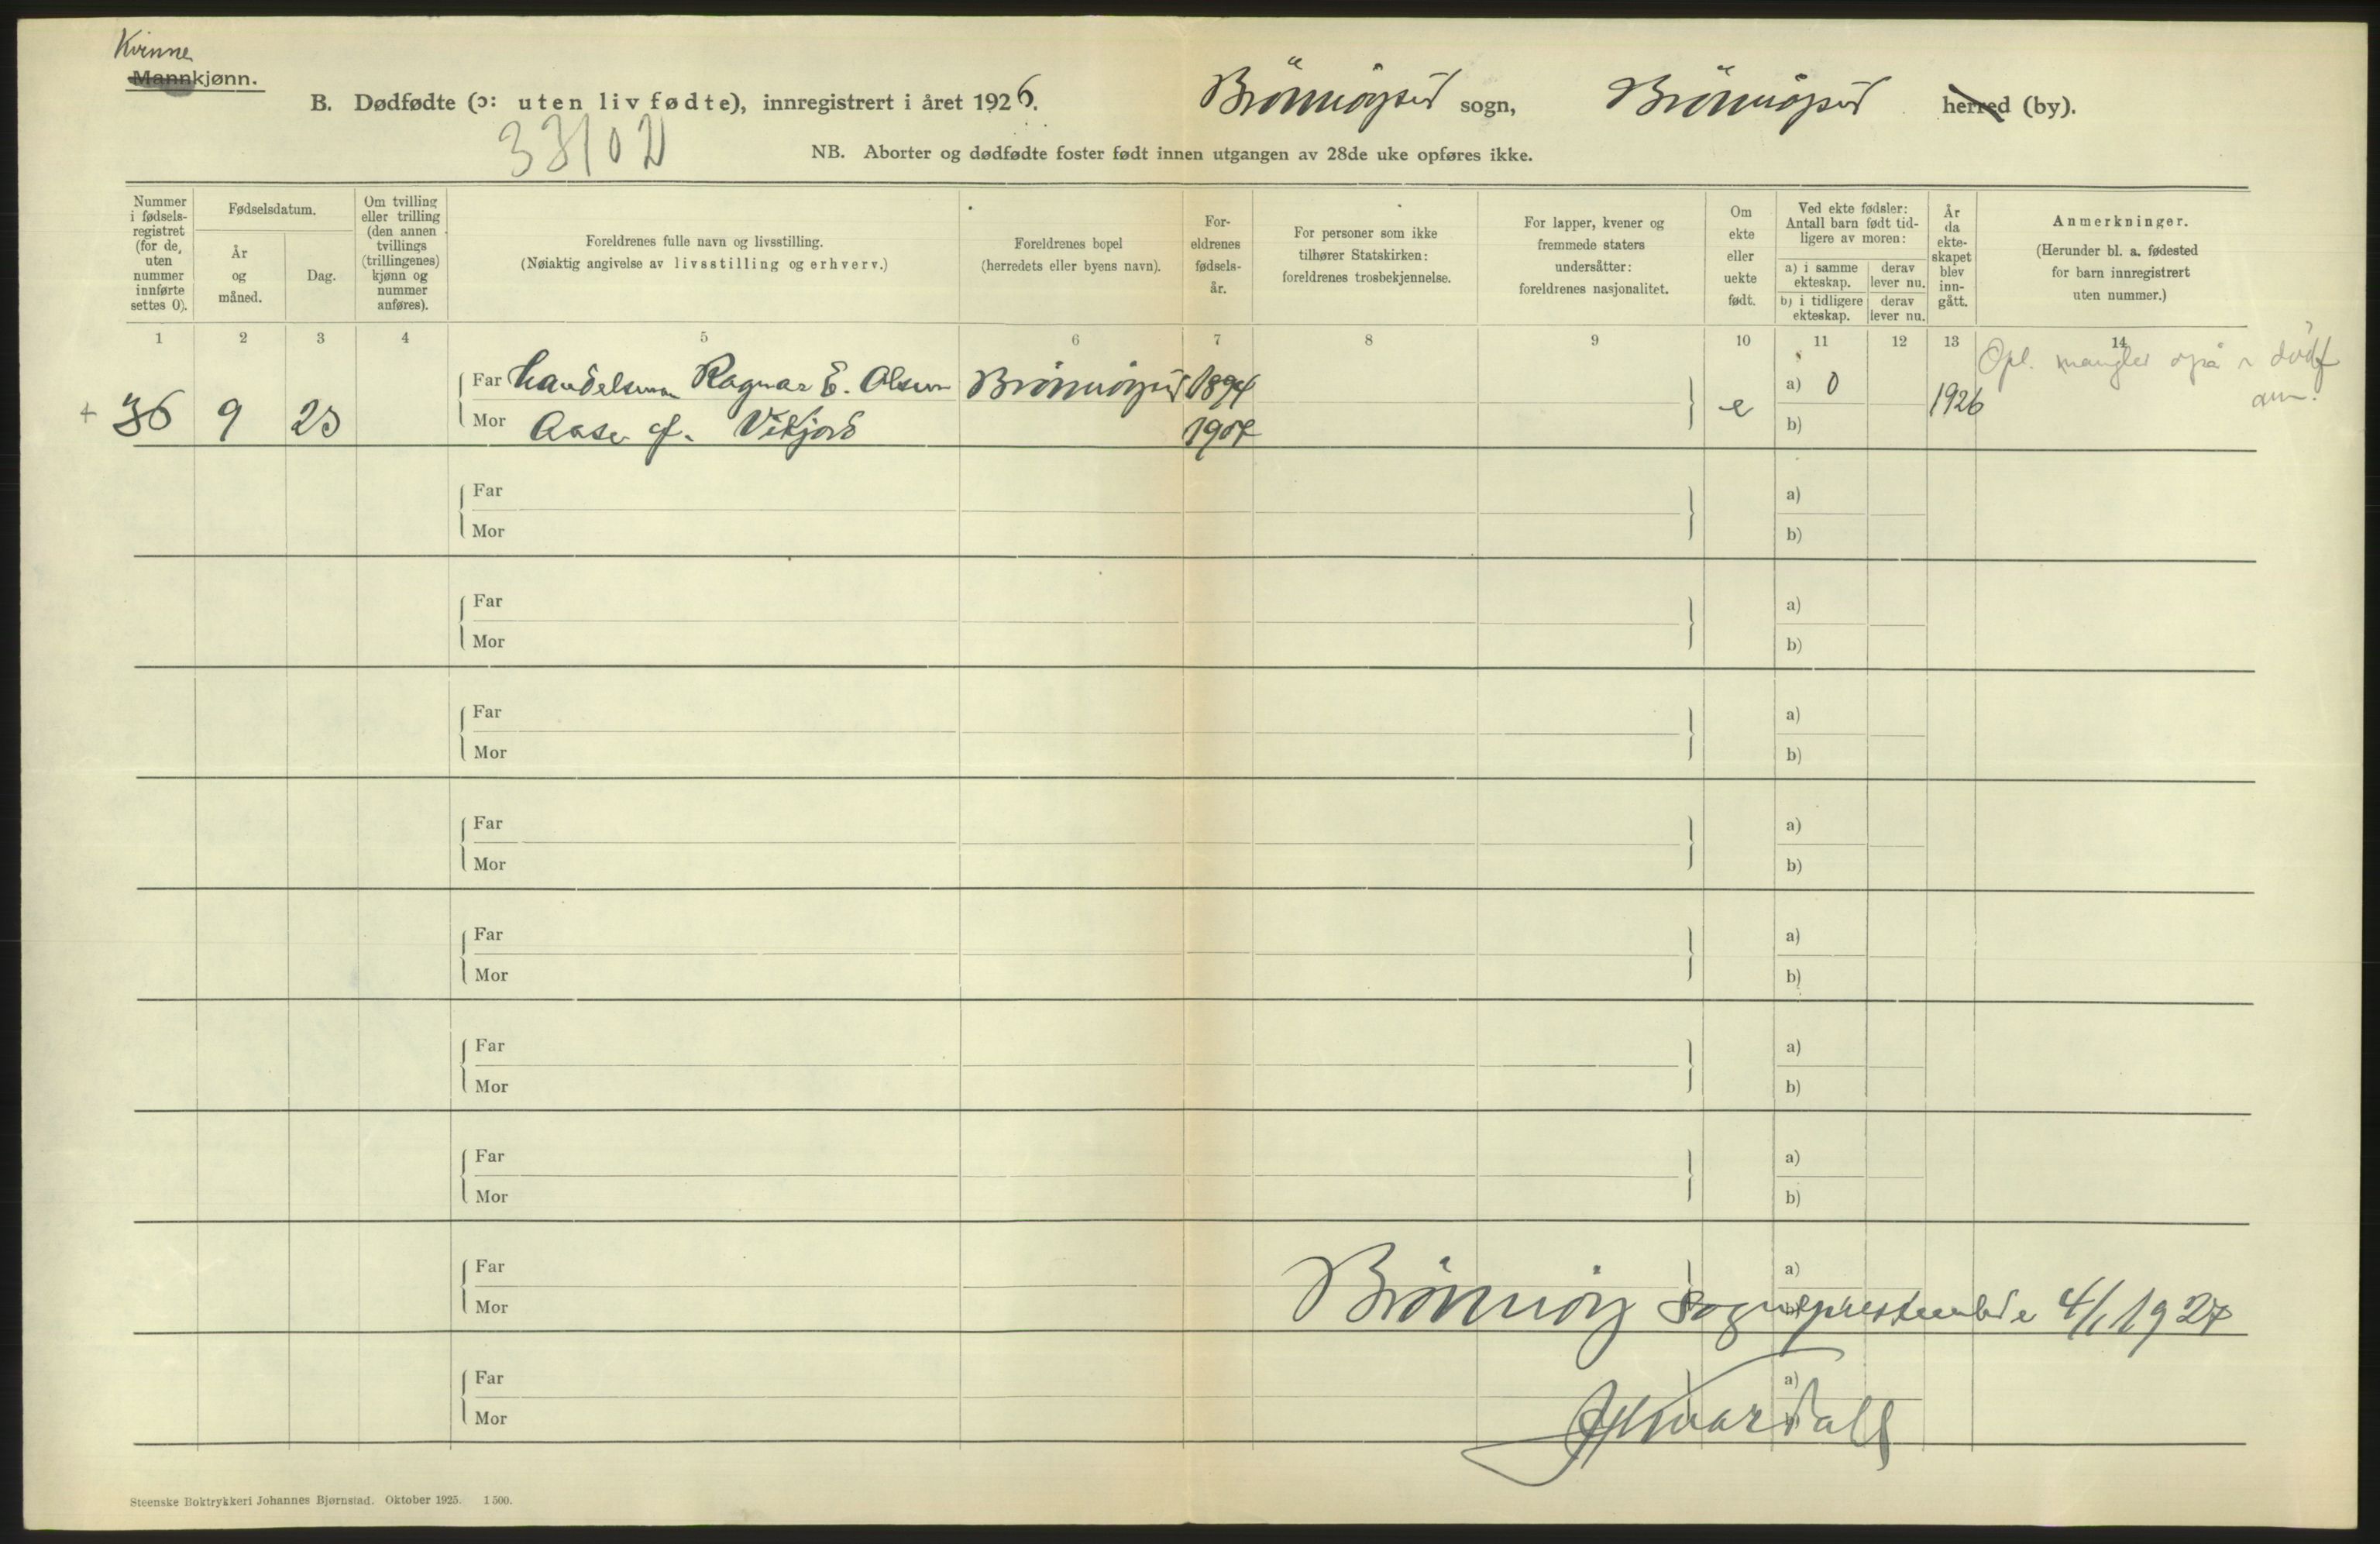 Kvinne
Mannkjønn.
B. Dødfødte (ɔ: uten liv fødte), innregistrert i året 1926. Brönnöysund sogn, Brönnöysund herred (by).
33/02
NB. Aborter og dødfødte foster født innen utgangen av 28de uke opføres ikke.
Nummer i fødsels-registret (for de, uten nummer innførte settes 0).
Fødselsdatum.
År og måned.
Dag.
Om tvilling eller trilling (den annen tvillings (trillingenes) kjønn og nummer anføres).
Foreldrenes fulle navn og livsstilling.
(Nøiaktig angivelse av livsstilling og erhverv.)
Foreldrenes bopel
(herredets eller byens navn).
For-eldrenes fødsels-år.
For personer som ikke tilhører Statskirken: foreldrenes trosbekjennelse.
For lapper, kvener og fremmede staters undersåtter: foreldrenes nasjonalitet.
Om ekte eller uekte født.
Ved ekte fødsler: Antall barn født tid-ligere av moren:
a) i samme ekteskap.
derav lever nu.
b) i tidligere ekteskap.
derav lever nu.
År da ekte-skapet blev inn-gått.
Anmerkninger.
(Herunder bl. a. fødested for barn innregistrert uten nummer.)
1 2 3 4 5 6 7 8 9 10 11 12 13 14
Opl. mangler også i dödf
+ 36 9 23 Far Handelsmann Ragnar E. Olsen Brönnöysund 1894 e a) 0 1926
Mor Aase f. Vikjord 1904 b)
Far a)
Mor b)
Far a)
Mor b)
Far a)
Mor b)
Far a)
Mor b)
Far a)
Mor b)
Far a)
Mor b)
Far a)
Mor b)
Far a)
Mor Brönnöy sogneprestembede 4/1 1927
Far a)
Mor
Steenske Boktrykkeri Johannes Bjørnstad. Oktober 1925. 1 500.